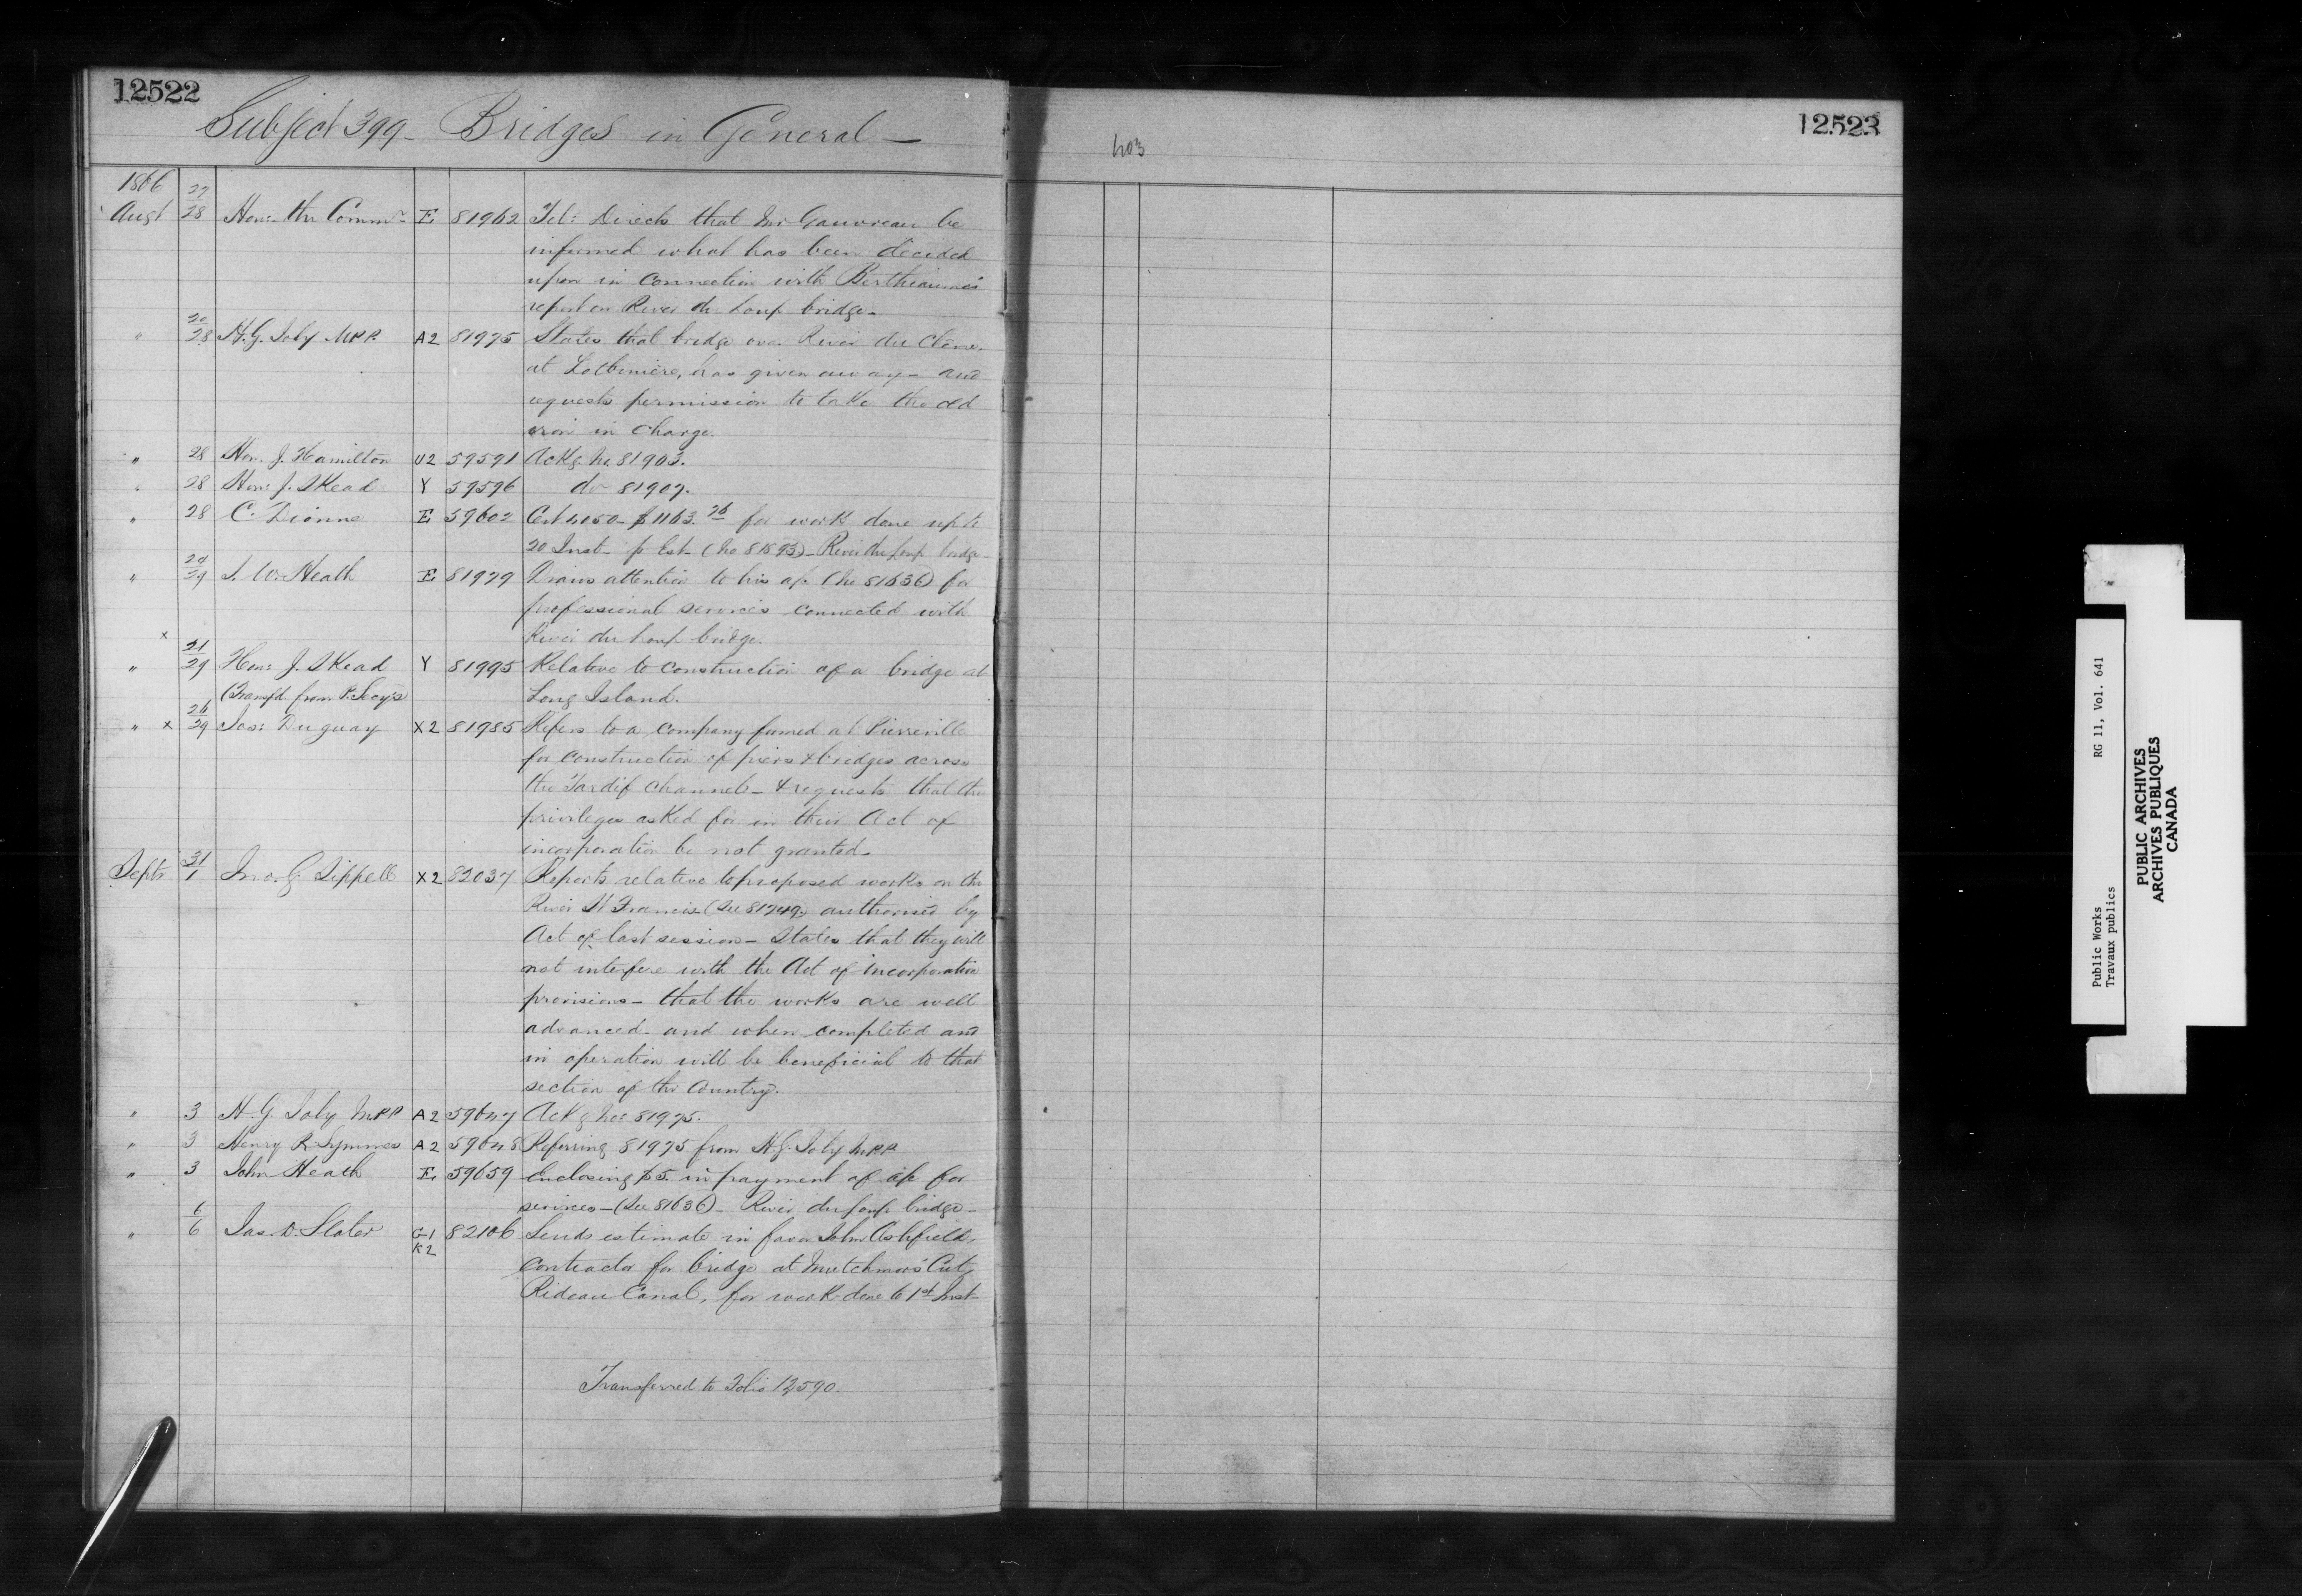 12522
Subject 399 - Bridges in General -
1866
Augt 27/28 Hon: the Commr E 81962 Tel: Directs that Mr Gauvreau be
informed what has been decided
upon in connection with Berthiaume's
report on River du Loup bridge -
" 20/28 H. G. Joly M.P.P. A2 81975 States that bridge over River du Chêne,
at Lotbinière, has given away - and
requests permission to take the old
iron in charge.
" 28 Hon. J. Hamilton U2 59591 Ackg No. 81903.
" 28 Hon: J. Skead Y 59596 do 81907.
" 28 C. Dionne E 59602 Cert 4050 - $1163.76 for work done up to
20 Inst - p Est - (No 81893) - River du Loup bridge -
" 29/29 J. W. Heath E 81979 Draws attention to his a/c (No 81636) for
professional services connected with
River du Loup bridge.
x
" 21/29 Hon: J. Skead Y 81995 Relative to construction of a bridge at
(Transfd. from P. Secy's Long Island.
" x 26/29 Jos: Duguay X2 81985 Refers to a company formed at Pierreville
for construction of piers & bridges across
the Tardif Channel - & requests that the
privileges asked for in their Act of
incorporation be not granted -
Septr 31/1 Jno. G. Sippell X2 82037 Reports relative to proposed works on the
River St Francis (See 81749.) authorised by
Act of last session - States that they will
not interfere with the Act of incorporation
provisions - that the works are well
advanced - and when completed and
in operation will be beneficial to that
section of the Country.
" 3 H. G. Joly M.P.P. A2 59647 Ackg No: 81975.
" 3 Henry R. Symmes A2 59648 Referring 81975 from H. G. Joly M.P.P.
" 3 John Heath E 59659 Enclosing $5. in payment of a/c for
services - (See 81636) - River du Loup bridge -
" 6/6 Jas. D. Slater G1 82106 Sends estimate in favor John Ashfield,
K2
contractor for bridge at Mutchmor's Cut,
Rideau Canal, for work done to 1st Inst -
Transferred to Folio 12,590.
12523
403
Public Works RG 11, Vol. 641
Travaux publics
PUBLIC ARCHIVES
ARCHIVES PUBLIQUES
CANADA